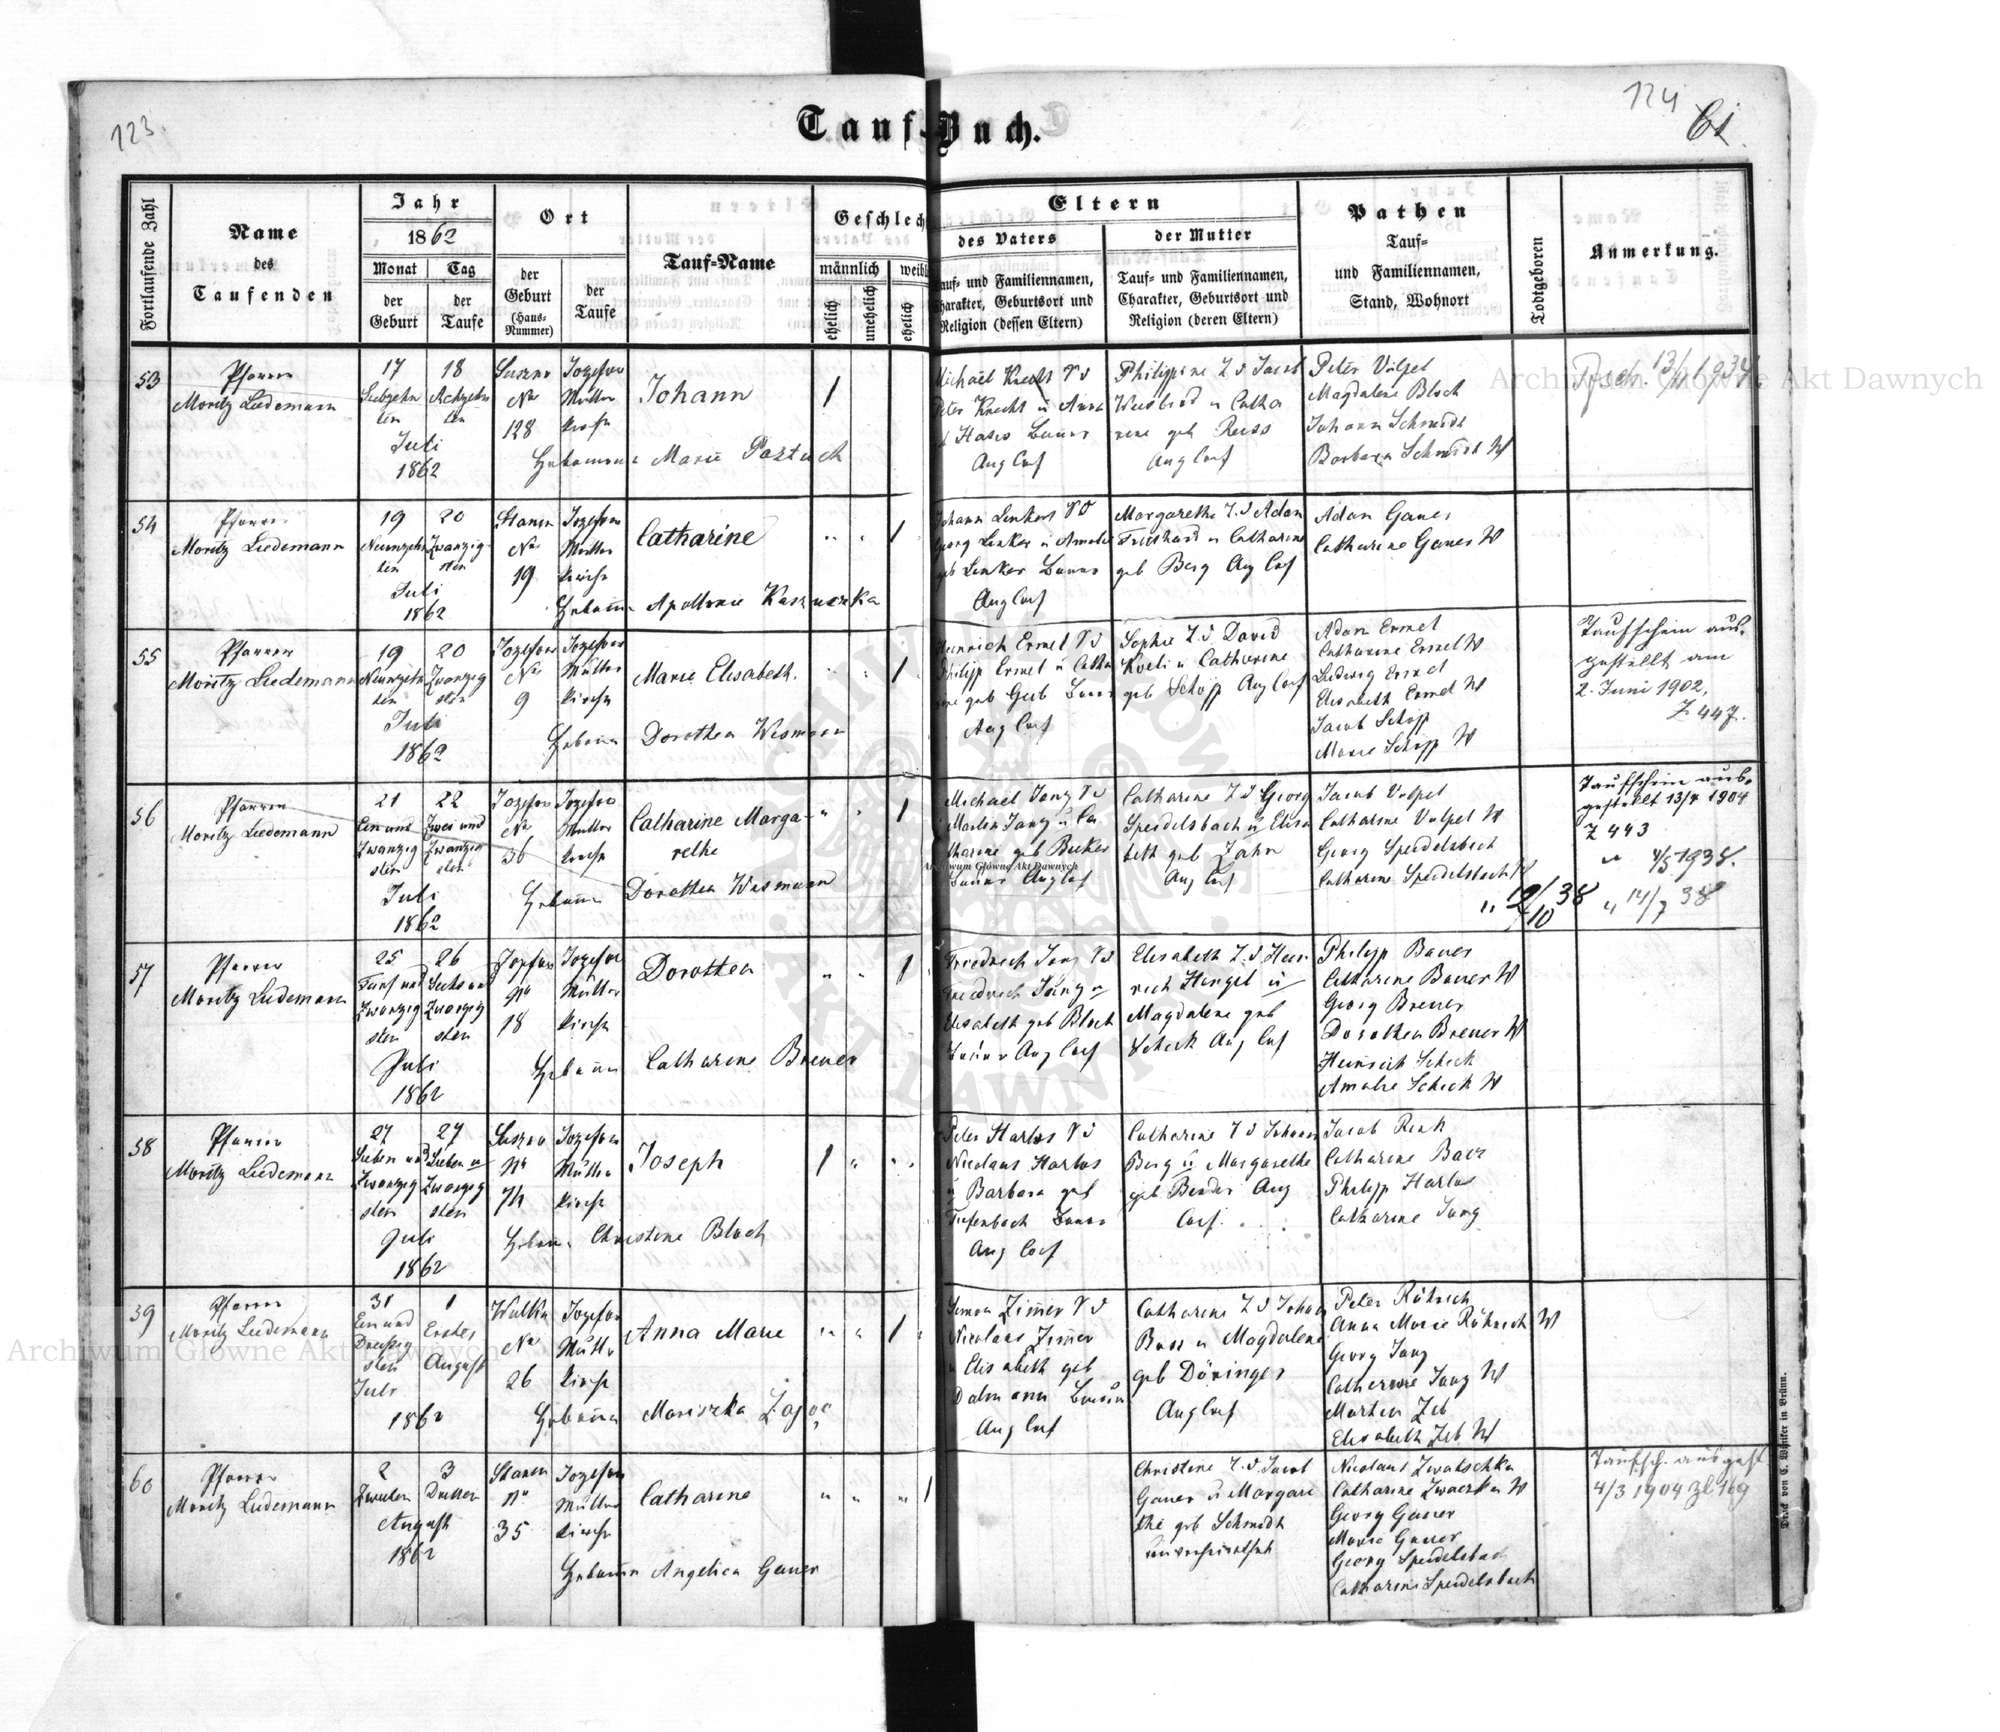 123.
124
61
Tauf-Buch.
Fortlaufende Zahl
Name
des
Taufenden
Jahr
1862
Monat
der
Geburt
Tag
der
Taufe
Ort
der
Geburt
(Haus-
Nummer)
der
Taufe
Tauf=Name
Geschlech
männlich
weibl
ehelich
unehelich
ehelich
Eltern
des Vaters
auf= und Familiennamen,
harakter, Geburtsort und
Religion (dessen Eltern)
der Mutter
Tauf= und Familiennamen,
Charakter, Geburtsort und
Religion (deren Eltern)
Pathen
Tauf=
und Familiennamen,
Stand, Wohnort
Todtgeboren
Anmerkung.
53
Pfarrer
Moritz Liedemann
17
Siebzehn
ten
18
Achtzehn
ten
Juli
1862
No
128
Jozefow
Mutter
kirche
Johann
Hebamme Marie Pastuch
Michael Knecht
Peter Knecht u Anna
Aug Conf
Philippine T d Jacob
Weisbrod u Catha
rine geb Reiss
Aug Conf
Peter Völpel
Magdalene Bloch
Johann Schmidt
Barbara Schmidt W
13/11 1934
54
Pfarrer
Moritz Liedemann
19
Neunzehn
ten
20
Zwanzig
sten
Juli
1862
Stanin
No
19
Jozefow
Mutter
kirche
Catharine
Hebamme Apollonie
Johann Lenker
Georg Lenker u Amalie
geb Lenker Bauer
Aug Conf
Margarethe T. d Adam
u Catharine
geb Berg Aug Conf
Adam Gauer
Catharine Gauer W
55
Pfarrer
Moritz Liedemann
19
Neunzehn
ten
20
Zwanzig
sten
Juli
1862
Jozefow
No
9
Jozefow
Mutter
kirche
Marie Elisabeth.
Hebamme Dorothea Wismann
Heinrich Ermel
Philipp Ermel u Catha
rine geb Geib Bauer
Aug Conf
Sophie T. d David
u Catharine
geb Schöpp Aug Conf
Adam Ermel
Catharine Ermel W
Ludwig Ermel
Elisabeth Ermel W
Jacob Schöpp
Marie Schöpp W
Taufschein aus-
gestellt am
2. Juni 1902,
Z 447.
56
Pfarrer
Moritz Liedemann
21
Ein und
Zwanzig
sten
22
Zwei und
Zwanzig
sten
Juli
1862
Jozefow
No
36
Jozefow
Mutter
kirche
Catharine Marga-
rethe
Hebamme Dorothea Wismann
Michael Jang
Martin Jang u Ca
tharine geb Becker
Bauer Aug Conf
Catharine T d Georg
Speidelsbach u Elisa
beth geb Zahn
Aug Conf
Jacob Volpel
Catharine Volpel W
Georg Speidelsbach
Catharine Speidelsbach W
Taufschein aus-
gestellt 13/4 1904
Z 443
" 4/5 1938.
" 12/10 38
" 14/7 38
57
Pfarrer
Moritz Liedemann
25
Fünf und
Zwanzig
sten
26
Sechs und
Zwanzig
sten
Juli
1862
Jozefow
No
18
Jozefow
Mutter
kirche
Dorothea
Hebamme Catharine Breuer
Friedrich Jang
Friedrich Jang u
Elisabeth geb Bloch
Bauer Aug Conf
Elisabeth T. d Hein
rich Hengel u
Magdalene geb
Scheck Aug Conf
Philipp Bauer
Catharine Bauer W
Georg Breuer
Dorothea Breuer W
Heinrich Scheck
Amalie Scheck W
58
Pfarrer
Moritz Liedemann
27
Sieben und
Zwanzig
sten
27
Sieben u
Zwanzig
sten
Juli
1862
No
74
Jozefow
Mutter
kirche
Joseph
Hebamme Christine Bloch
Peter Harlos
Nicolaus Harlos
u Barbara geb
Tiefenbach Bauer
Aug Conf
Catharine T d Johann
Berg u Margarethe
geb Bender Aug
Conf.
Jacob Renk
Catharine Baer
Philipp Harlos
Catharine Jang
59
Pfarrer
Moritz Liedemann
31
Ein und
Dreißig
sten
Juli
1
Ersten
August
1862
Wulka
No
26
Jozefow
Mutter
kirche
Anna Marie
Hebamme Mariszka Zając
Simon Zimer
Nicolaus Zimer
u Elisabeth geb
Dalmann
Aug Conf
Catharine T d Johann
u Magdalene
geb Döringer
Aug Conf
Peter Röhrich
Anna Marie Röhrich W
Georg Jang
Catharine Jang W
Martin Zeb
Elisabeth Zeb W
60
Pfarrer
Moritz Liedemann
2
Zweiten
3
Dritten
August
1862
Stanin
No
35
Jozefow
Mutter
kirche
Catharine
Hebamme Angelica Gauer
Christine T. d. Jacob
Gauer u Margare
the geb Schmidt
unverheirathet
Nicolaus Zwatschka
Catharine W
Georg Gauer
Marie Gauer
Georg Speidelsbach
Catharine Speidelsbach
Taufsch. ausgest
4/3 1904 Zl 169
Druck von C. Winiker in Brünn.
Archiwum Główne Akt Dawnych
Archiwum Główne Akt Dawnych
Archiwum Główne Akt Dawnych